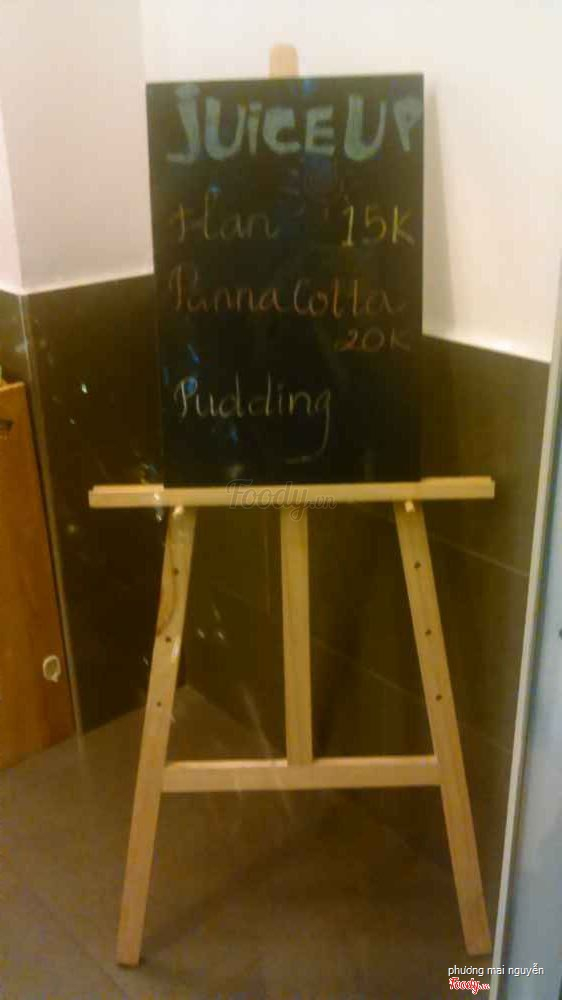 JUICE UP
Flan 15K
Panna Cotta
20K
Pudding
Foody.vn
phương mai nguyễn
Foody.vn